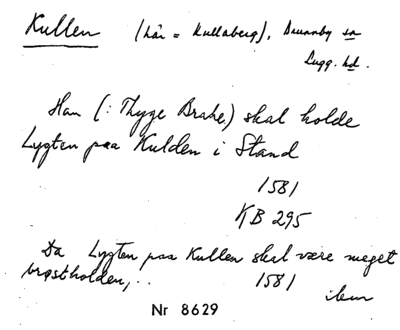 Kullen (här = Kullaberg), Brunnby sn
Lugg. hd.
Han (: Thyge Brahe) skal holde
Lygten paa Kulden i Stand
1581
KB 295
Da Lygten paa Kullen skal være meget
brøstholden, .. 1581
ibm
Nr 8629